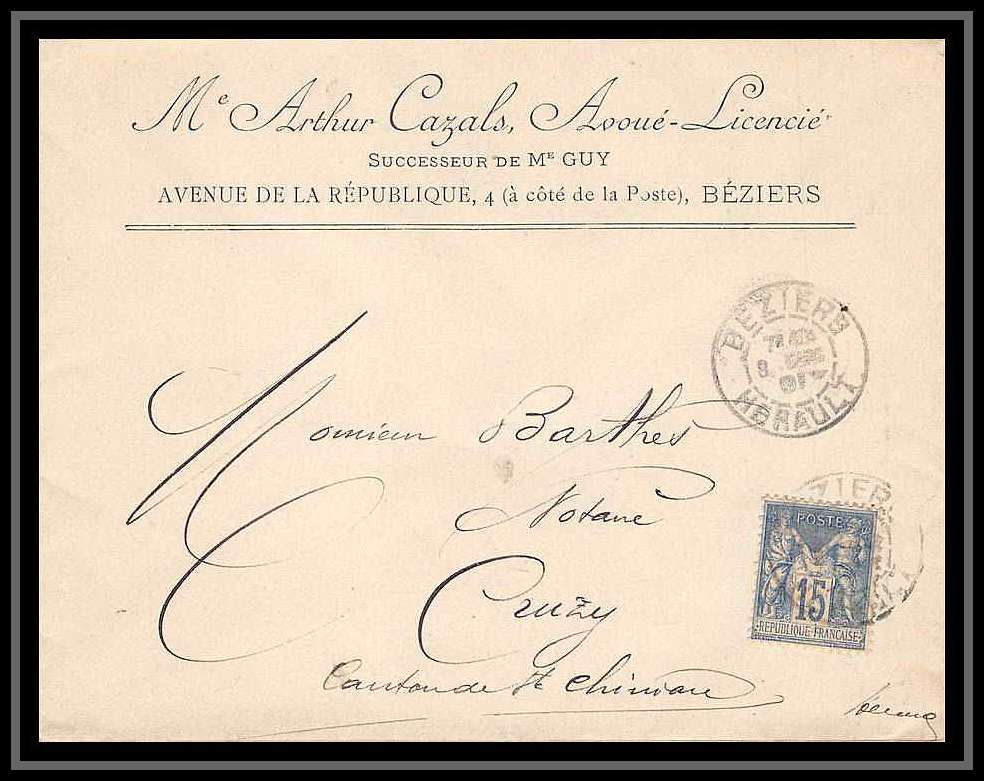 Me Arthur Cazals, Avoué-Licencié
SUCCESSEUR DE ME GUY
AVENUE DE LA RÉPUBLIQUE, 4 (à côté de la Poste), BÉZIERS
BEZIERS
HERAULT
Monsieur Barthes
Notaire
Cruzy
Canton de St Chinian
ZIER
POSTE
15
REPUBLIQUE FRANÇAISE